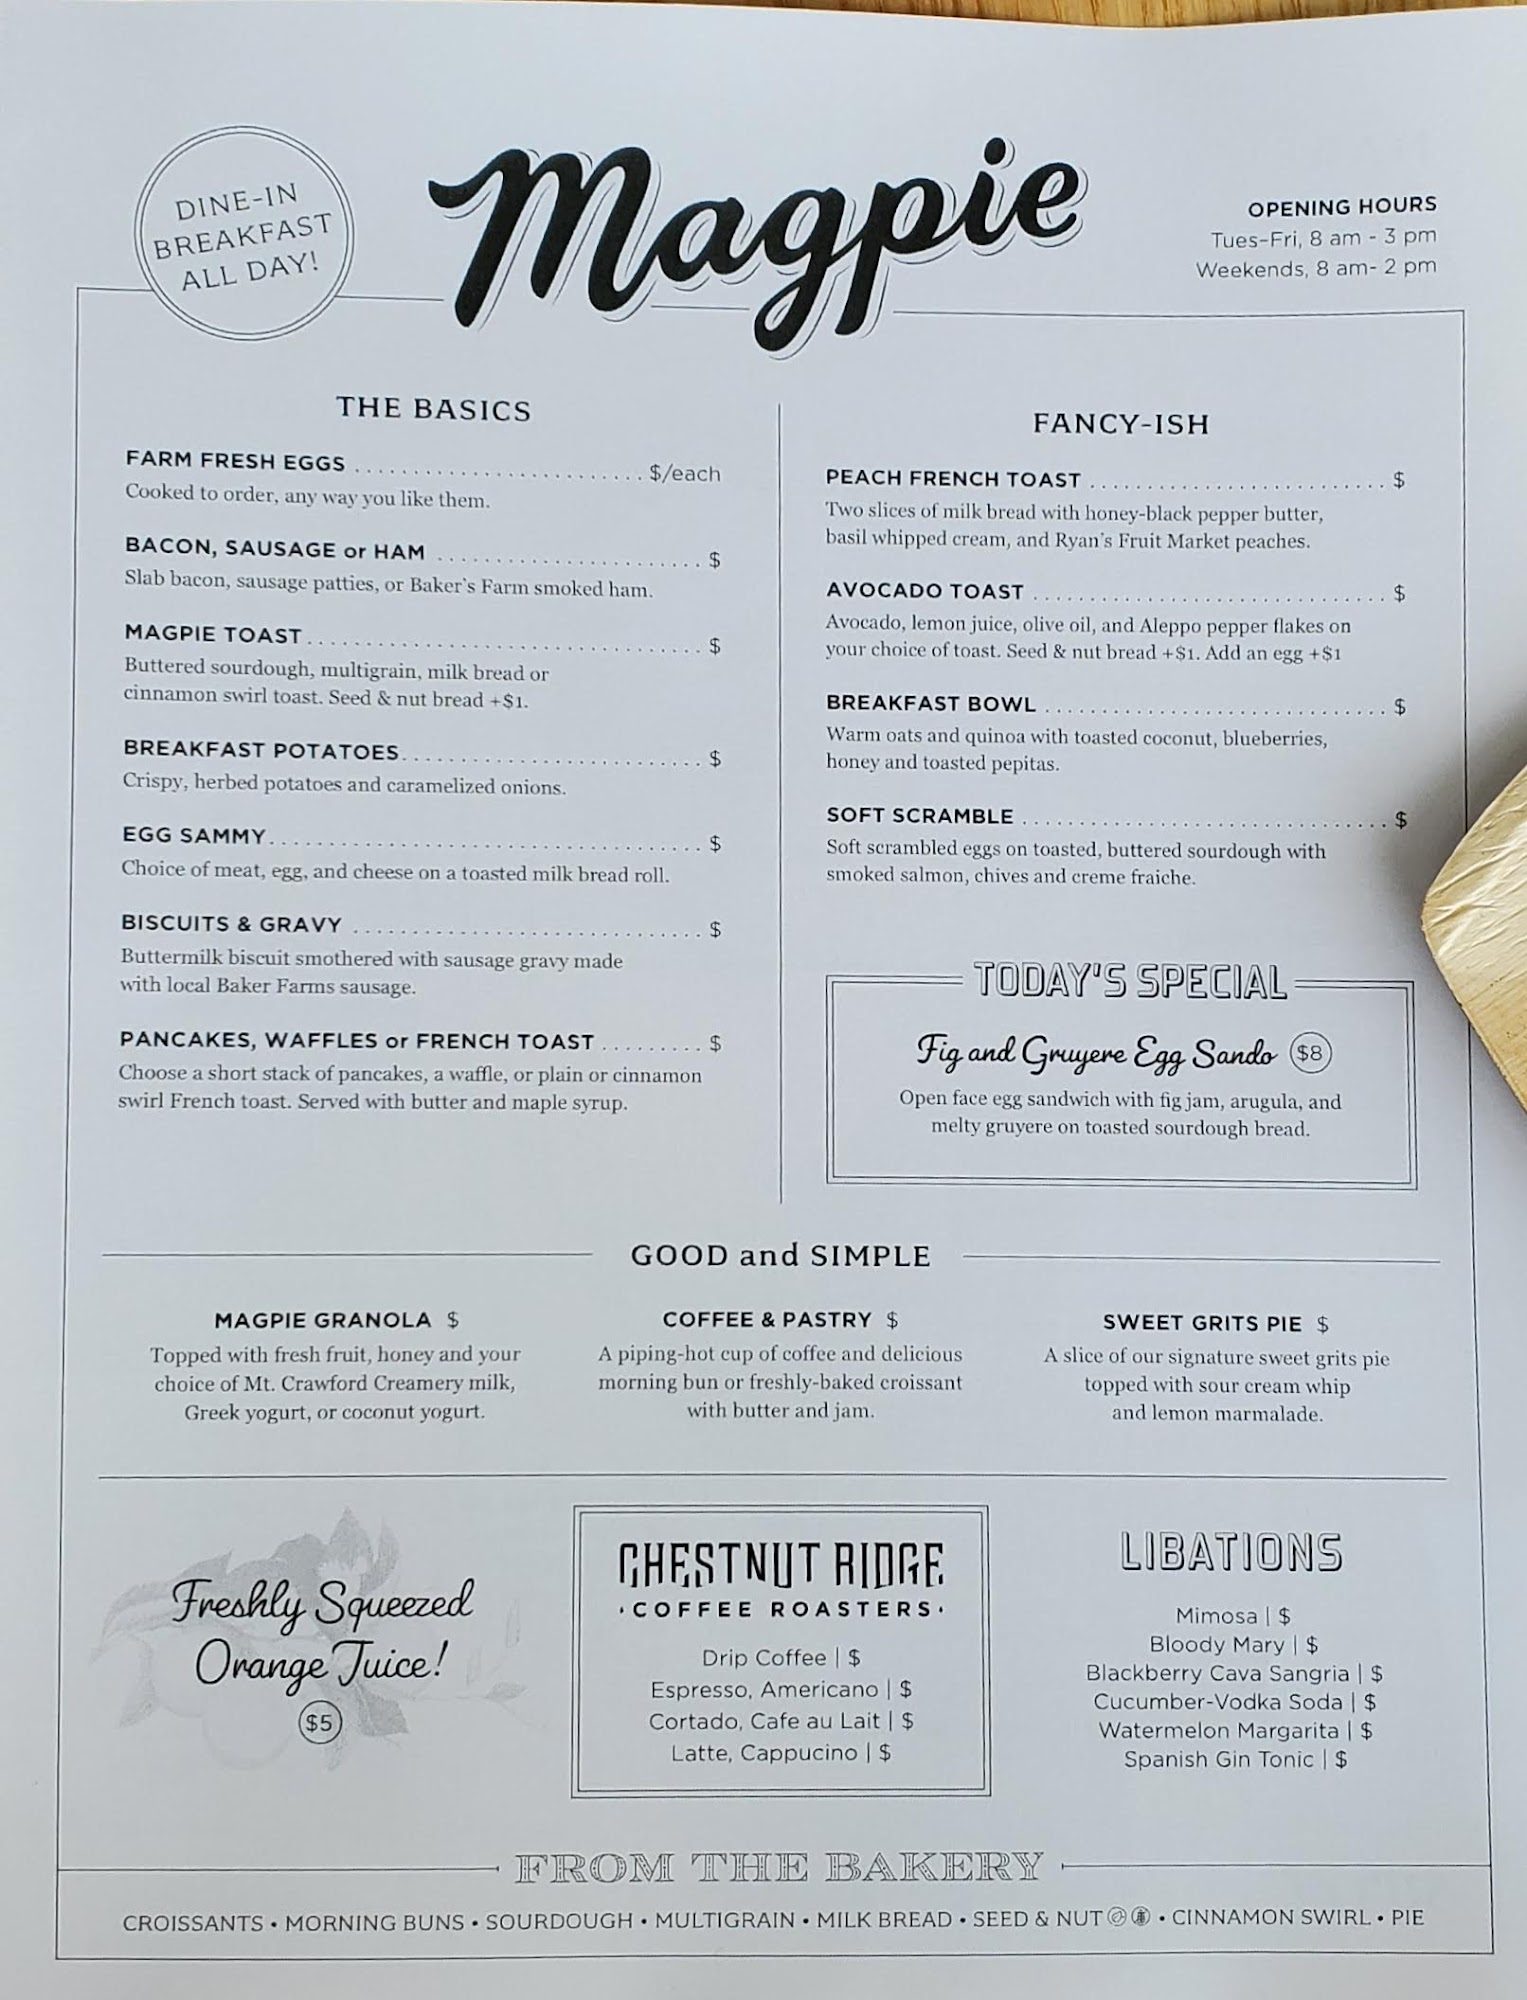 DINE-IN
BREAKFAST
ALL DAY!
Magpie
OPENING HOURS
Tues-Fri, 8 am - 3 pm
Weekends, 8 am- 2 pm
THE BASICS
FARM FRESH EGGS ........................ $/each
Cooked to order, any way you like them.
BACON, SAUSAGE or HAM ...................... $
Slab bacon, sausage patties, or Baker's Farm smoked ham.
MAGPIE TOAST ................................. $
Buttered sourdough, multigrain, milk bread or
cinnamon swirl toast. Seed & nut bread +$1.
BREAKFAST POTATOES ......................... $
Crispy, herbed potatoes and caramelized onions.
EGG SAMMY .................................... $
Choice of meat, egg, and cheese on a toasted milk bread roll.
BISCUITS & GRAVY ............................. $
Buttermilk biscuit smothered with sausage gravy made
with local Baker Farms sausage.
PANCAKES, WAFFLES or FRENCH TOAST ......... $
Choose a short stack of pancakes, a waffle, or plain or cinnamon
swirl French toast. Served with butter and maple syrup.
FANCY-ISH
PEACH FRENCH TOAST ......................... $
Two slices of milk bread with honey-black pepper butter,
basil whipped cream, and Ryan's Fruit Market peaches.
AVOCADO TOAST .............................. $
Avocado, lemon juice, olive oil, and Aleppo pepper flakes on
your choice of toast. Seed & nut bread +$1. Add an egg +$1
BREAKFAST BOWL ............................. $
Warm oats and quinoa with toasted coconut, blueberries,
honey and toasted pepitas.
SOFT SCRAMBLE ............................... $
Soft scrambled eggs on toasted, buttered sourdough with
smoked salmon, chives and creme fraiche.
TODAY'S SPECIAL
Fig and Gruyere Egg Sando $8
Open face egg sandwich with fig jam, arugula, and
melty gruyere on toasted sourdough bread.
GOOD and SIMPLE
MAGPIE GRANOLA $
Topped with fresh fruit, honey and your
choice of Mt. Crawford Creamery milk,
Greek yogurt, or coconut yogurt.
COFFEE & PASTRY $
A piping-hot cup of coffee and delicious
morning bun or freshly-baked croissant
with butter and jam.
SWEET GRITS PIE $
A slice of our signature sweet grits pie
topped with sour cream whip
and lemon marmalade.
Freshly Squeezed
Orange Juice!
$5
CHESTNUT RIDGE
• COFFEE ROASTERS •
Drip Coffee | $
Espresso, Americano | $
Cortado, Cafe au Lait | $
Latte, Cappucino | $
LIBATIONS
Mimosa | $
Bloody Mary | $
Blackberry Cava Sangria | $
Cucumber-Vodka Soda | $
Watermelon Margarita | $
Spanish Gin Tonic | $
FROM THE BAKERY
CROISSANTS • MORNING BUNS • SOURDOUGH • MULTIGRAIN • MILK BREAD • SEED & NUT • CINNAMON SWIRL • PIE